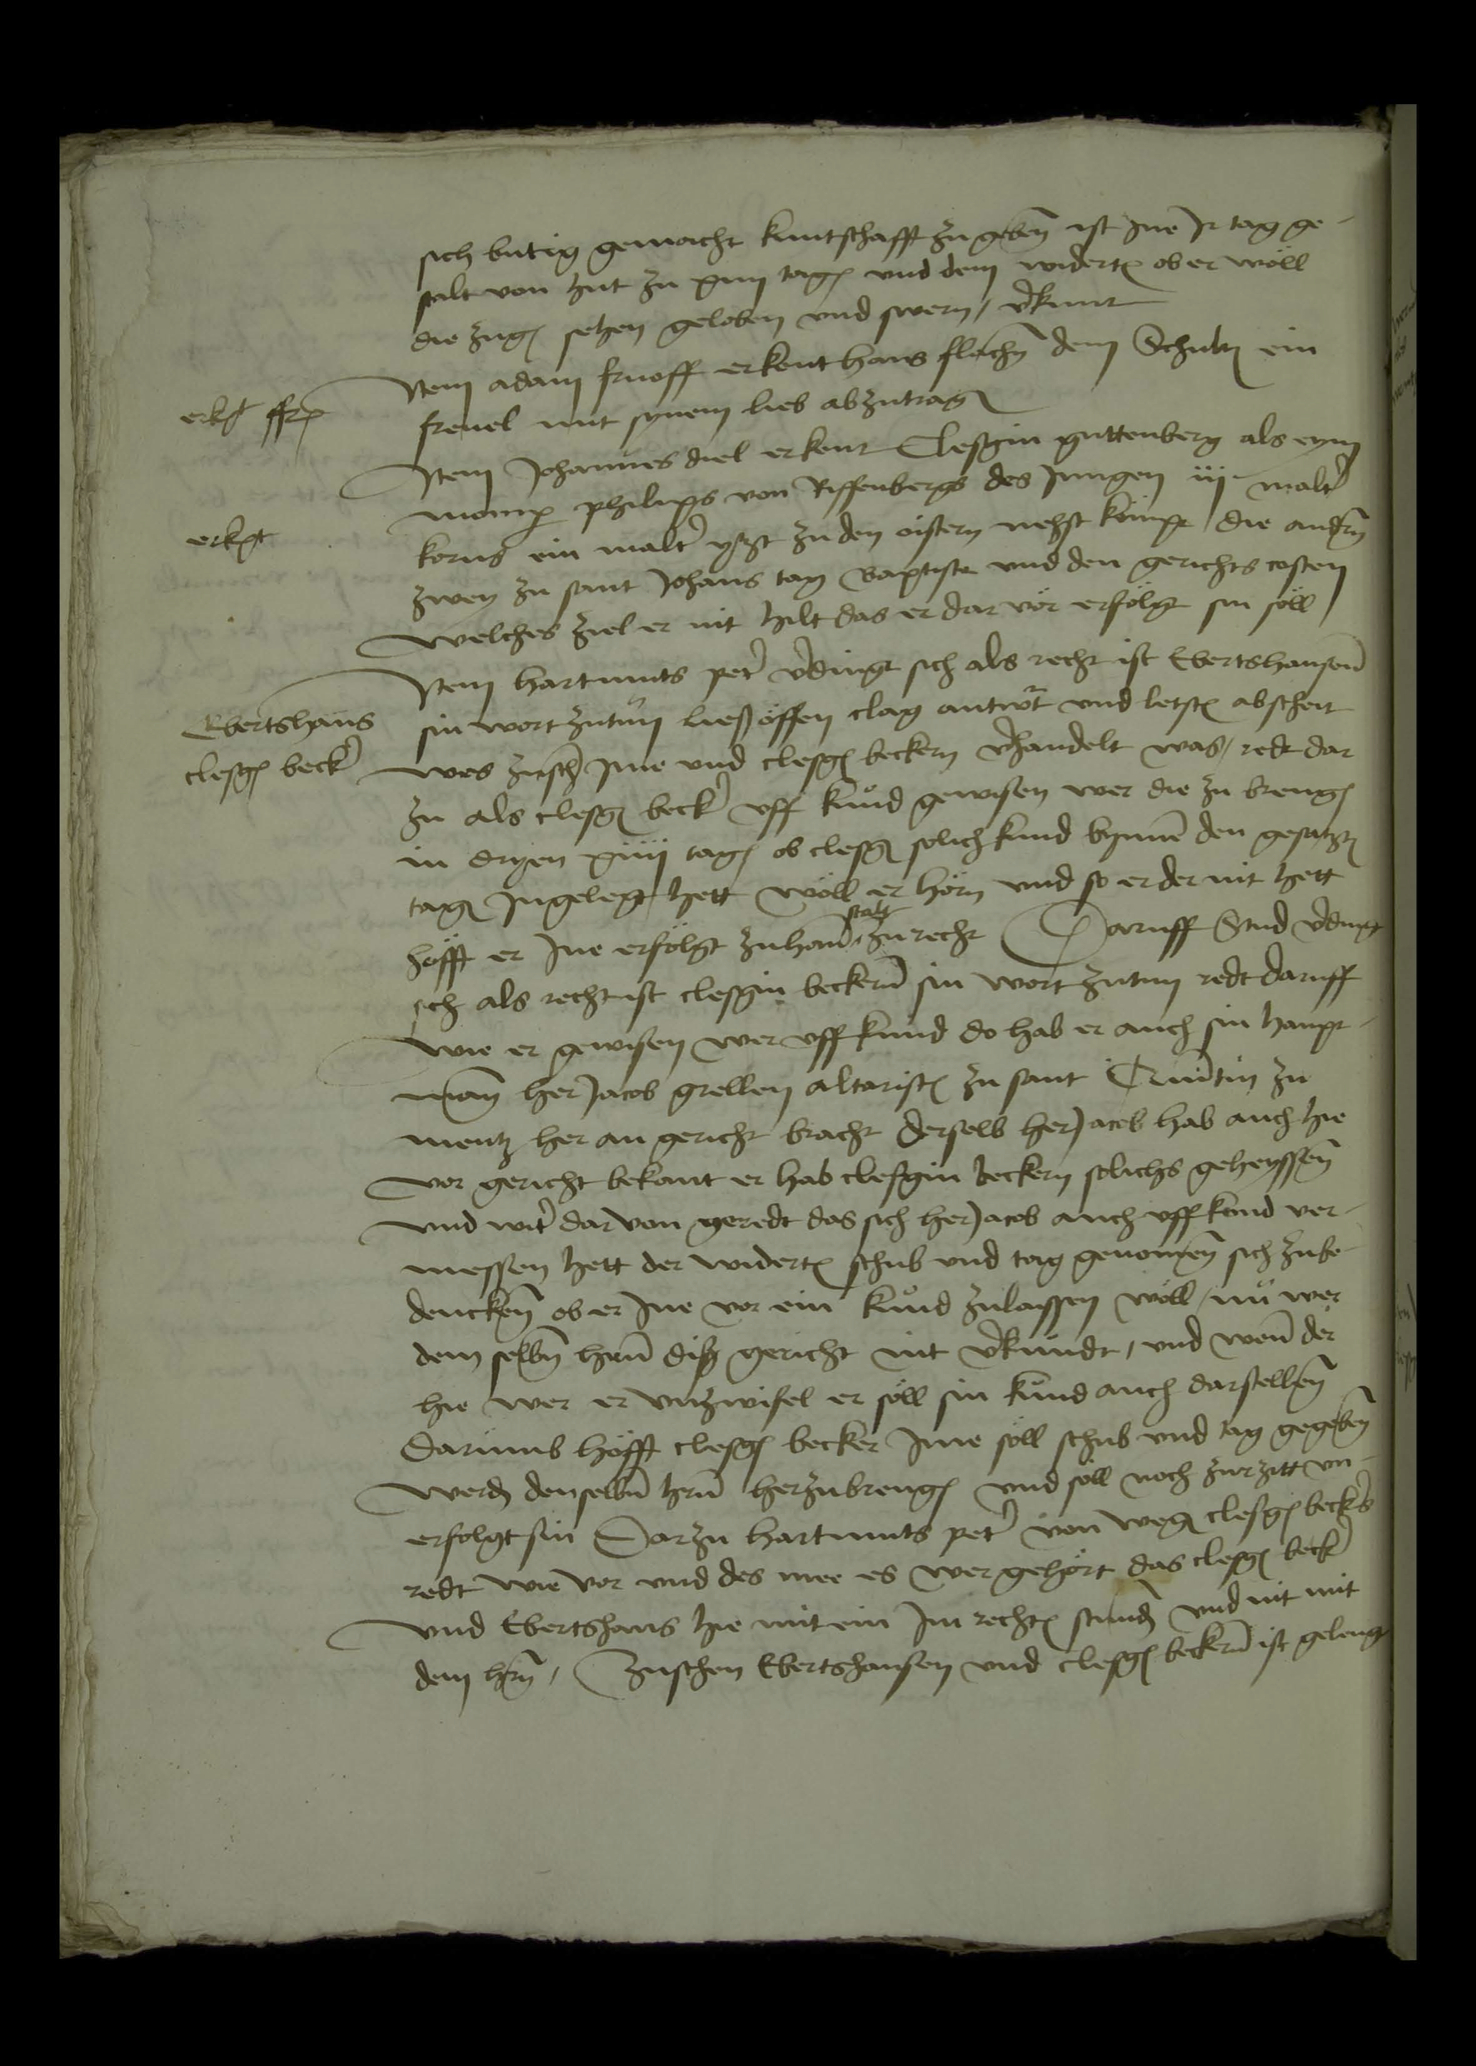 sich butig gemacht kuntschafft zu geben ist Ine Ir tag ge-
stalt von hut zu xiiij tagen und dem widerteil ob er wöll
die zugen sehen geloben und swern / verkunt
Item adam fruoff erkent hans flachen dem Schultis ein
erkent ffr
frevel mit synem lieb abzutragen
Item Johannes diel erkent Clesgin guttenberg als eym
momper philips von Riffenbergs des Jungen iij malter
erkent
korns ein malter yetzt zu den ostern nehst kompt / die andern
zwey zu sant Johans tag Baptiste und den gerichts costen
welches ziel er nit hilt das er dar vor erfölgt sin söll
Item hartmuts peter verdingt sich als recht ist Ebertshansen
Ebertshans
sin wort zutun ließ öffen clag antwort und letste abscheit
clesgen becker
wes zuschen Ime und clesgen beckern verhandelt was / redt dar
zu als clesgen becker uff kund gewisen wer die zu brengen
in dryen xiiij tagen ob clesgen solich kund bynnen den gesatzten
tagen Ingelegt hett wöll er hörn und so er der nit hett
höfft er Ine erfölgt zuhan stalt zu recht Daruff Stud verdingt
sich als recht ist clesgin beckern sin wort zutun redt daruff
wie er gewisen wer uff kund do hab er auch sin haupt-
man her Jacob grellen altaristen zu sant Quintin zu
mentz her an gericht bracht derselb her Jacob hab auch hie
vor gericht bekant er hab clesgin beckern solichs geheyssen
und witer dar von geredt das sich her Jacob auch uff kund ver-
messen hett der widerteil schub und tag genomen sich zube-
dencken ob er Ine vor ein kund zulaissen wöll / nü wer
dem selben hern diß gericht nit verkundt / und wenn der
hie wer er unzwifel er söll sin kund auch darstellen
Darümb höfft clesgen becker Ime söll schub und tag gegeben
werden denselben hern herzubrengen und söll noch zurzitt un-
erfolgt sin Darzu hartmuts peter von wegen clesgen beckers
redt wie vor und des mee es wer gehört das clesgen becker
und Ebertshans hie mit ein Im rechten stunden und nit mit
dem hern / Zuschen Ebertshansen und clesgen beckern ist gelengt